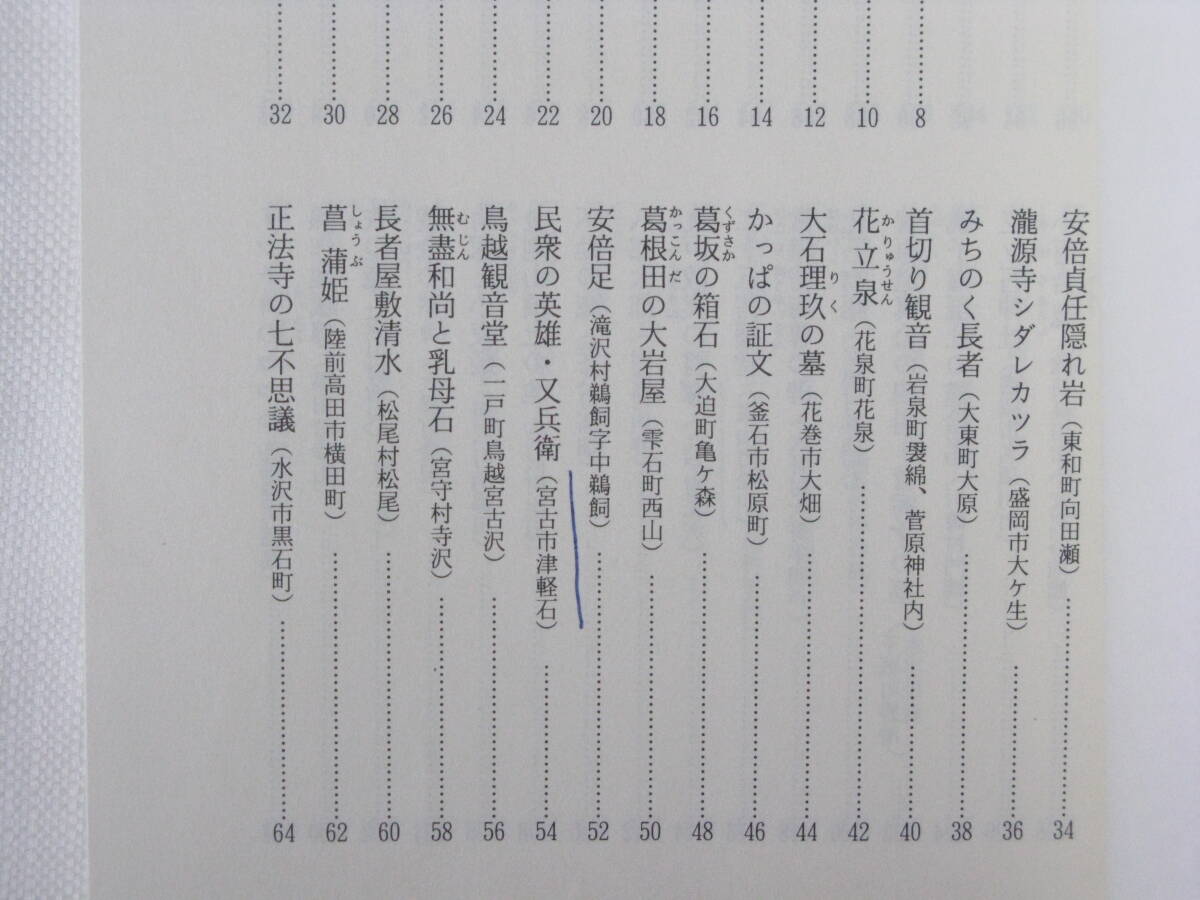 8
10
12
14
16
18
20
22
24
26
28
30
32
安倍貞任隠れ岩(東和町向田瀬)34
瀧源寺シダレカツラ(盛岡市大ケ生)36
みちのく長者(大東町大原)38
首切り観音(岩泉町袰綿、菅原神社内)40
花立泉(花泉町花泉)42
かりゅうせん
大石理玖の墓(花巻市大畑)44
りく
かっぱの証文(釜石市松原町)46
葛坂の箱石(大迫町亀ケ森)48
くずさか
葛根田の大岩屋(雫石町西山)50
かっこんだ
安倍足(滝沢村鵜飼字中鵜飼)52
民衆の英雄・又兵衛(宮古市津軽石)54
鳥越観音堂(一戸町鳥越宮古沢)56
無盡和尚と乳母石(宮守村寺沢)58
むじん
長者屋敷清水(松尾村松尾)60
菖蒲姫(陸前高田市横田町)62
しょうぶ
正法寺の七不思議(水沢市黒石町)64